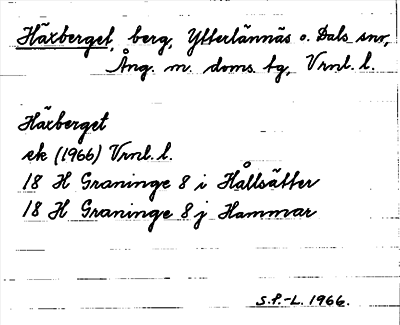 Häxberget, berg, Ytterlännäs o. Dals snr,
Ång. m. doms. tg, Vrnl. l.
Häxberget
ek (1966) Vrnl. l.
18 H Graninge 8 i Hållsätter
18 H Graninge 8 j Hammar
S.P.-L. 1966.